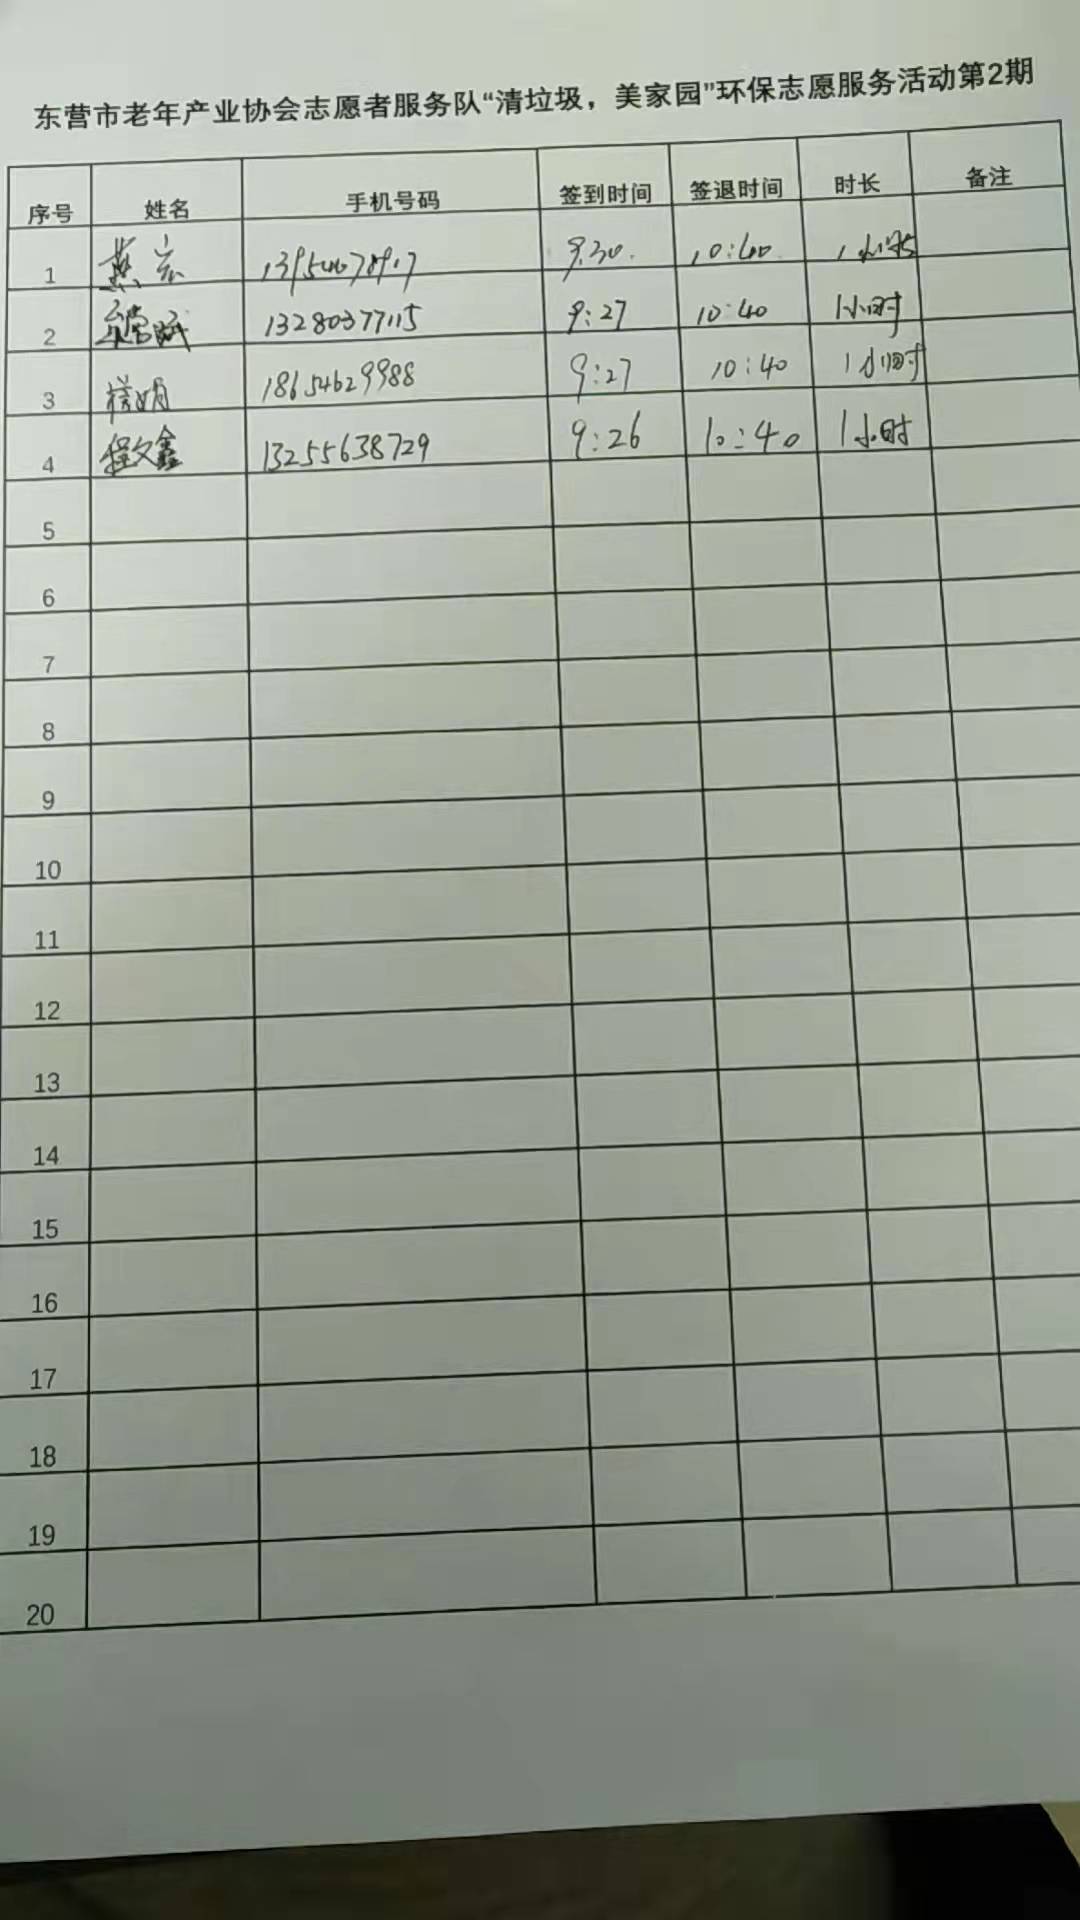 东营市老年产业协会志愿者服务队“清垃圾，美家园”环保志愿服务活动第2期
序号 姓名 手机号码 签到时间 签退时间 时长 备注
1 燕 9:30. 10:40 1小时
2 13280377115 9:27 10:40 1小时
3 娟 18654629988 9:27 10:40 1小时
4 程文鑫 13255638729 9:26 10:40 1小时
5
6
7
8
9
10
11
12
13
14
15
16
17
18
19
20